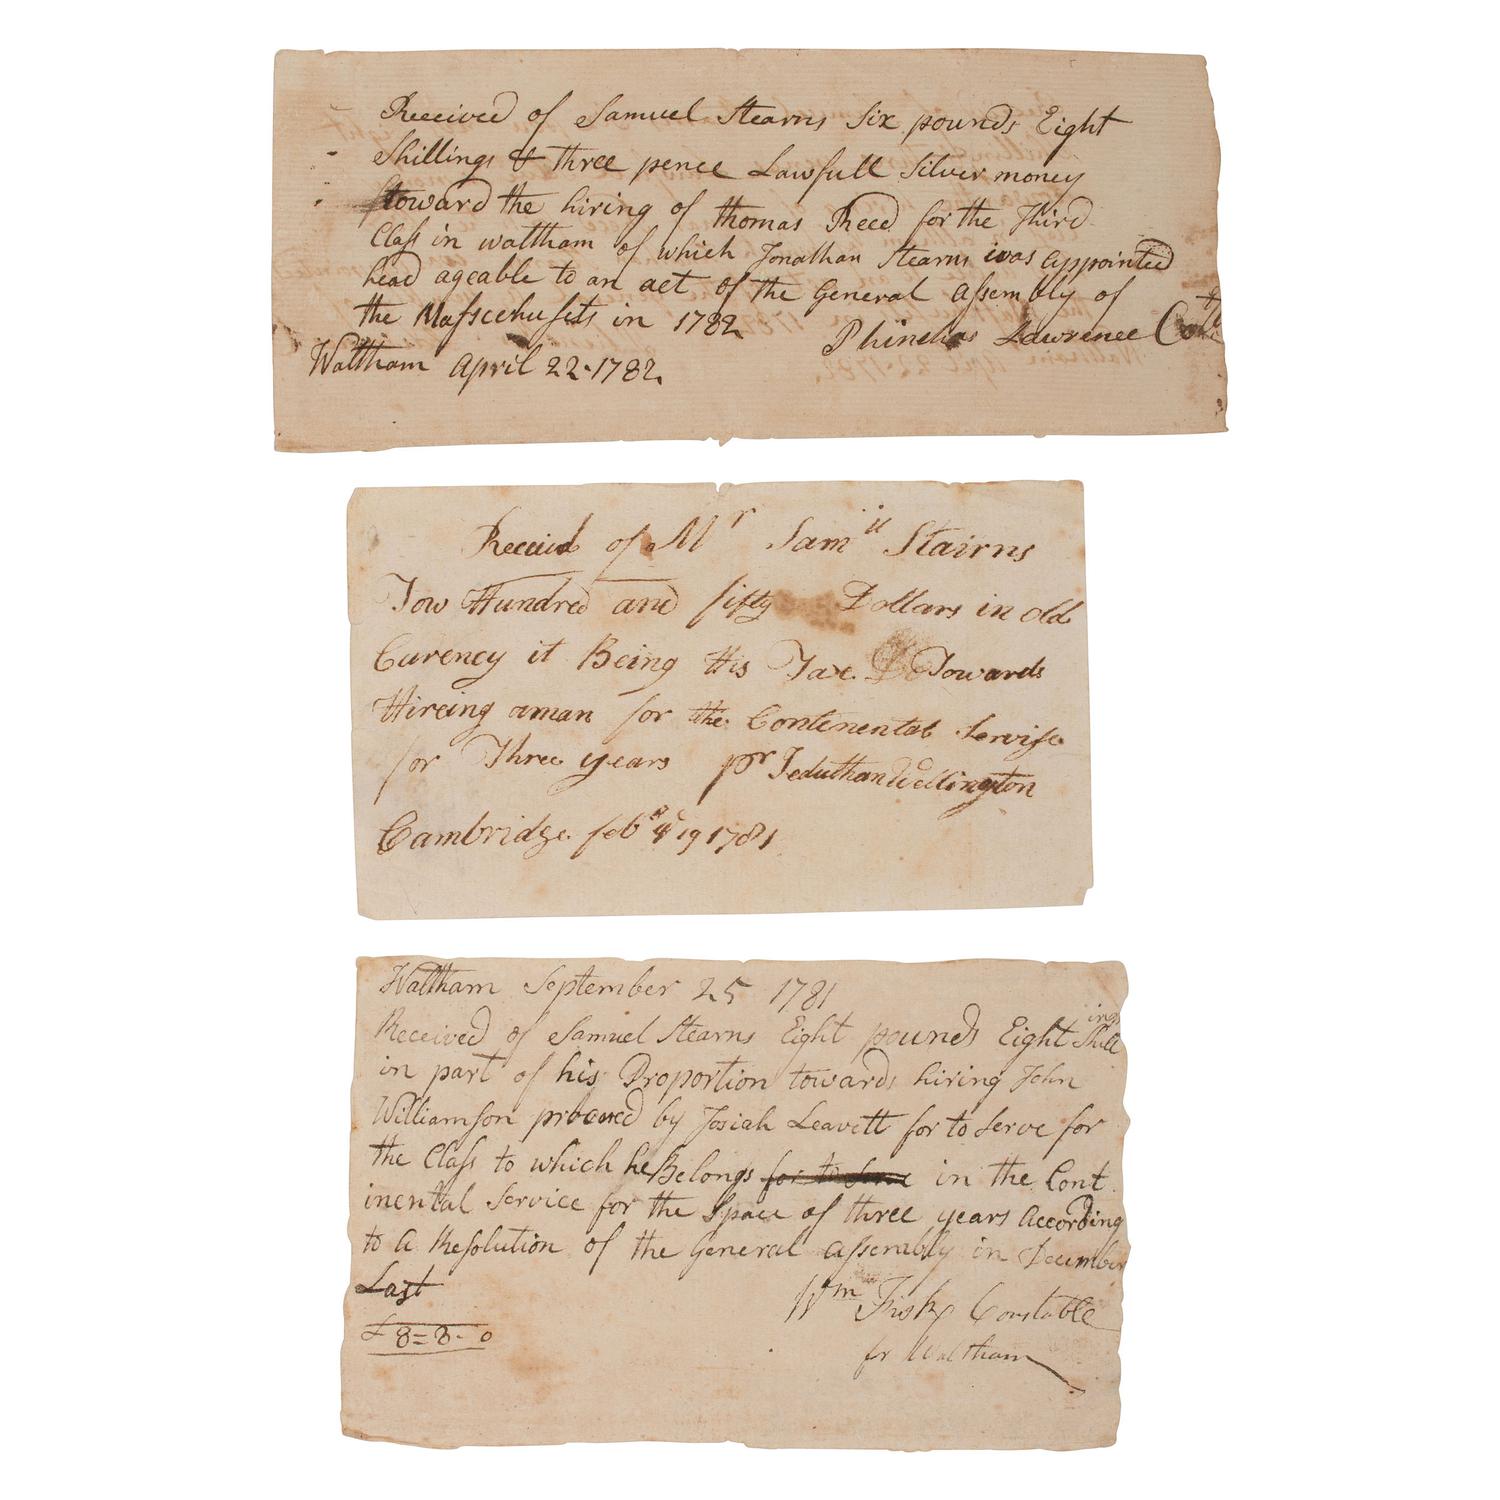 Received of Samuel Stearns Six pounds Eight
Shillings & three pence Lawfull Silver money
toward the hiring of thomas Reed for the Third
Class in waltham of which Jonathan Stearns was appointed
head ageable to an act of the General Assembly of
the Massechusets in 1782
Phinehas Lawrence
Waltham April 22 - 1782.
Receid of Mr Samll Stairns
Tow Hundred and fifty Dollars in old
Curency it Being His Tax Towards
Hireing aman for the Contenental Servise
for Three years pr Jeduthan Wellington
Cambridge feb 19 1781
Waltham September 25 1781
Received of Samuel Stearns Eight pounds Eight Shillings
in part of his Proportion towards hiring John
Williamson procured by Josiah Leavett for to Serve for
the Class to which he Belongs for to Serve in the Cont
inental Service for the Space of three years According
to A Resolution of the General Assembly in December
Last
Wm Fisk Constable
for Waltham
£ 8=8-0